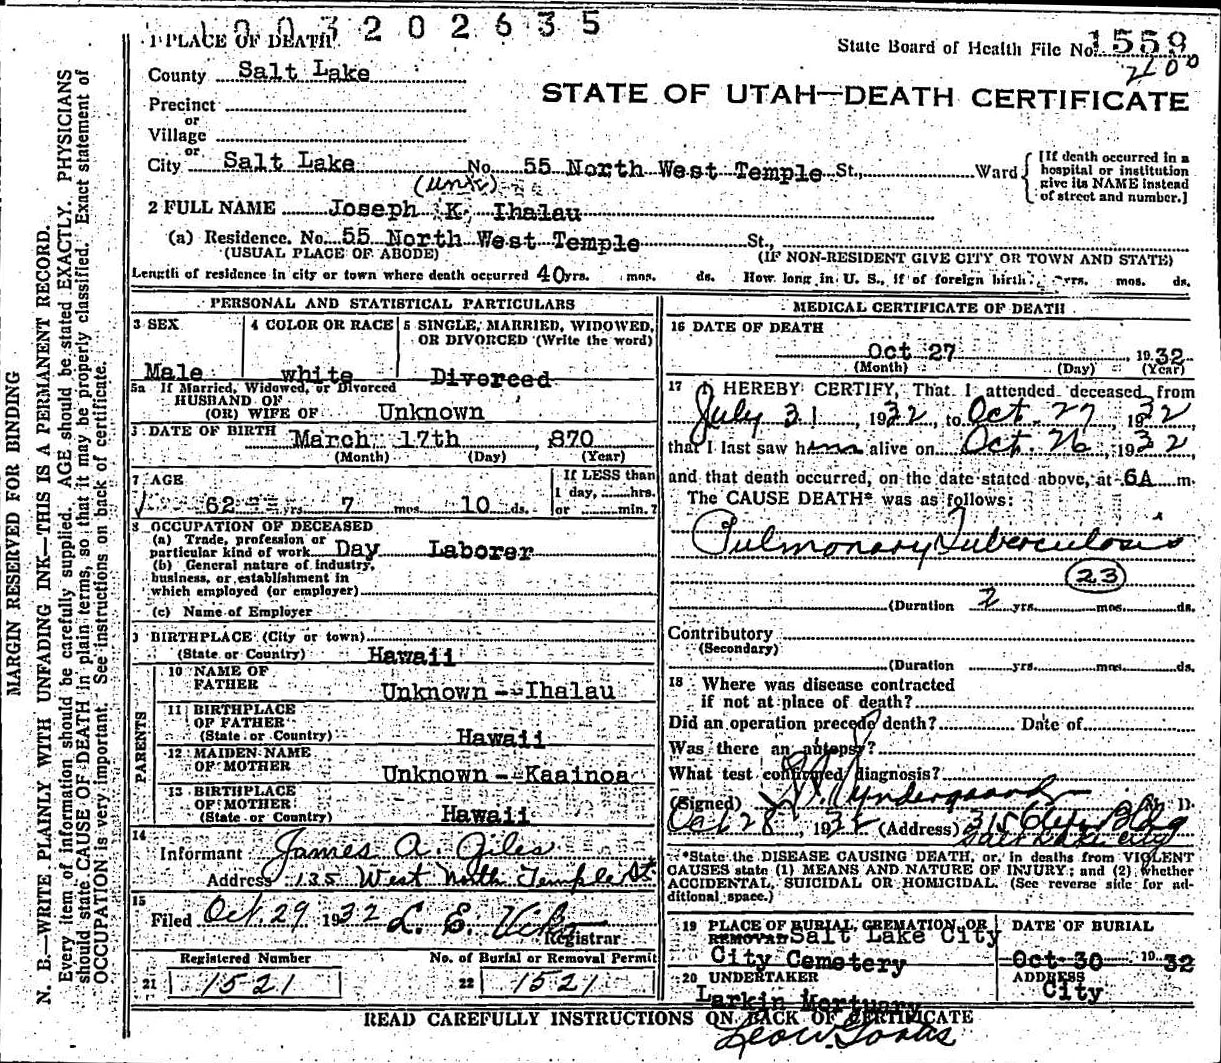 1003202635
1 PLACE OF DEATH
State Board of Health File No. 1559
2100
County Salt Lake
STATE OF UTAH—DEATH CERTIFICATE
Precinct
or
Village
or
City Salt Lake No. 55 North West Temple St., Ward
[If death occurred in a
hospital or institution
give its NAME instead
of street and number.]
(unk)
2 FULL NAME Joseph K. Ihalau
(a) Residence. No. 55 North West Temple St.,
(USUAL PLACE OF ABODE) (IF NON-RESIDENT GIVE CITY OR TOWN AND STATE)
Length of residence in city or town where death occurred 40 yrs. mos. ds. How long in U. S., if of foreign birth? yrs. mos. ds.
PERSONAL AND STATISTICAL PARTICULARS
3 SEX
Male
4 COLOR OR RACE
white
5 SINGLE, MARRIED, WIDOWED,
OR DIVORCED (Write the word)
Divorced
5a If Married, Widowed, or Divorced
HUSBAND OF
(OR) WIFE OF Unknown
DATE OF BIRTH March 17th ,870
(Month) (Day) (Year)
7 AGE
62 yrs. 7 mos. 10 ds.
If LESS than
1 day, hrs.
or min.?
8 OCCUPATION OF DECEASED
(a) Trade, profession or
particular kind of work Day Laborer
(b) General nature of industry,
business, or establishment in
which employed (or employer)
(c) Name of Employer
BIRTHPLACE (City or town)
(State or Country) Hawaii
PARENTS
10 NAME OF
FATHER Unknown--Ihalau
11 BIRTHPLACE
OF FATHER
(State or Country) Hawaii
12 MAIDEN NAME
OF MOTHER Unknown--Kaainoa
13 BIRTHPLACE
OF MOTHER
(State or Country) Hawaii
14
Informant James A. Giles
Address 135 West North Temple St.
15
Filed Oct. 29 1932 L. E. Viko
Registrar
Registered Number No. of Burial or Removal Permit
21 1521 22 1521
MEDICAL CERTIFICATE OF DEATH
16 DATE OF DEATH
Oct 27 1932
(Month) (Day) (Year)
17 I HEREBY CERTIFY, That I attended deceased from
July 31, 1932, to Oct. 27, 1932
that I last saw him alive on Oct. 26, 1932
and that death occurred, on the date stated above, at 6A m.
The CAUSE DEATH* was as follows:
Pulmonary Tuberculosis
23
(Duration 2 yrs. mos. ds.
Contributory
(Secondary)
(Duration yrs. mos. ds.
18 Where was disease contracted
if not at place of death?
Did an operation precede death? Date of
Was there an autopsy?
What test confirmed diagnosis?
(Signed) M. D.
Oct 28, 1932 (Address) 315 Bldg
Salt Lake City
*State the DISEASE CAUSING DEATH, or, in deaths from VIOLENT
CAUSES state (1) MEANS AND NATURE OF INJURY; and (2) whether
ACCIDENTAL, SUICIDAL OR HOMICIDAL. (See reverse side for ad-
ditional space.)
19 PLACE OF BURIAL, CREMATION, OR
REMOVAL Salt Lake City
City Cemetery
DATE OF BURIAL
Oct 30 1932
20 UNDERTAKER
Larkin Mortuary
ADDRESS
City
READ CAREFULLY INSTRUCTIONS ON BACK OF CERTIFICATE
MARGIN RESERVED FOR BINDING
N. B.—WRITE PLAINLY WITH UNFADING INK—THIS IS A PERMANENT RECORD.
Every item of information should be carefully supplied. AGE should be stated EXACTLY. PHYSICIANS
should state CAUSE OF DEATH in plain terms, so that it may be properly classified. Exact statement of
OCCUPATION is very important. See instructions on back of certificate.